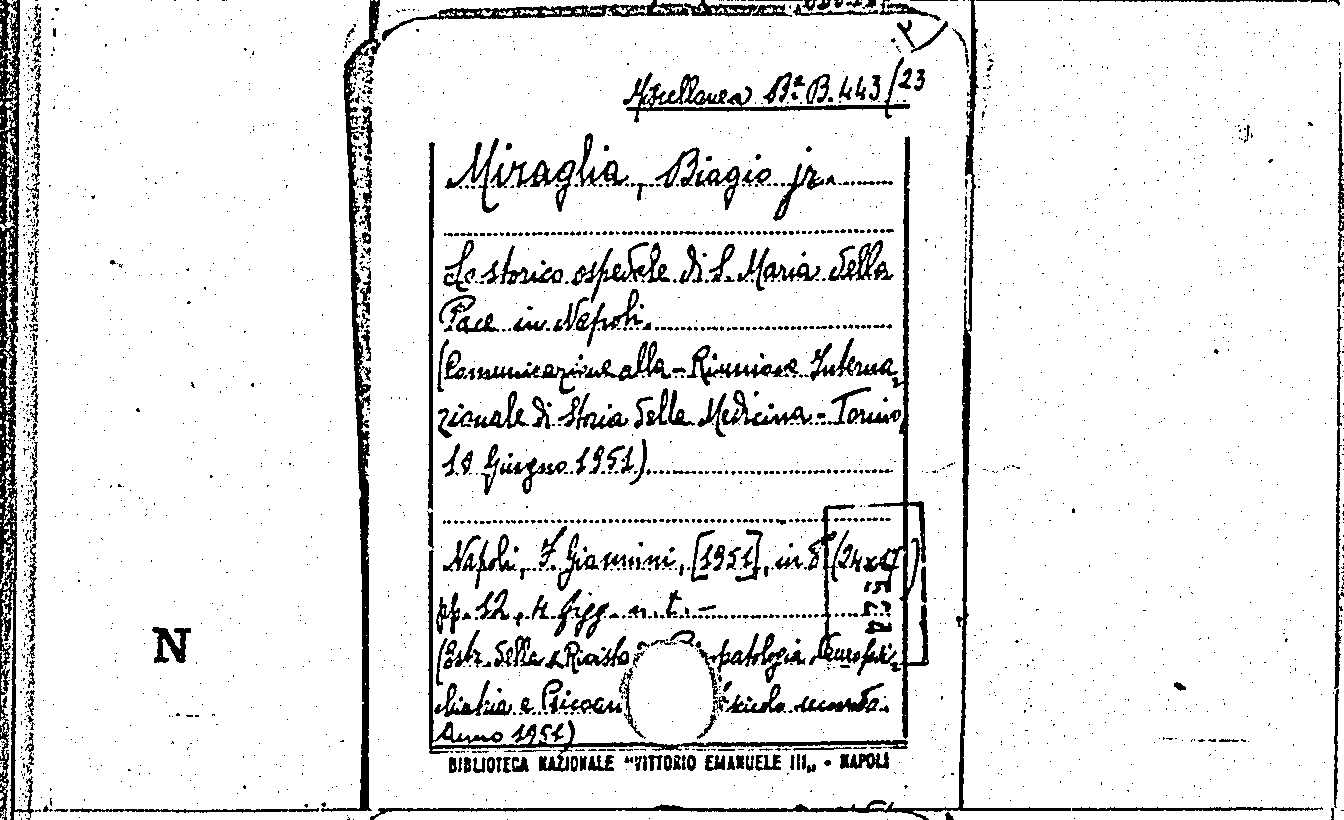 Miscellanea Bª B. 443/23
Miraglia, Biagio jr.
Lo storico ospedale di S. Maria della
Pace in Napoli.
(Comunicazione alla - Riunione Interna=
zionale di Storia della Medicina - Torino,
18 Giugno 1951)
Napoli, F. Giannini, [1951], in 8° (24x17)
pp. 12, 4 figg. n. t. -
(Estr. della "Rivista patologia Neuropsi=
chiatria e Psicoan secondo.
Anno 1951)
N
BIBLIOTECA NAZIONALE "VITTORIO EMANUELE III„ - NAPOLI